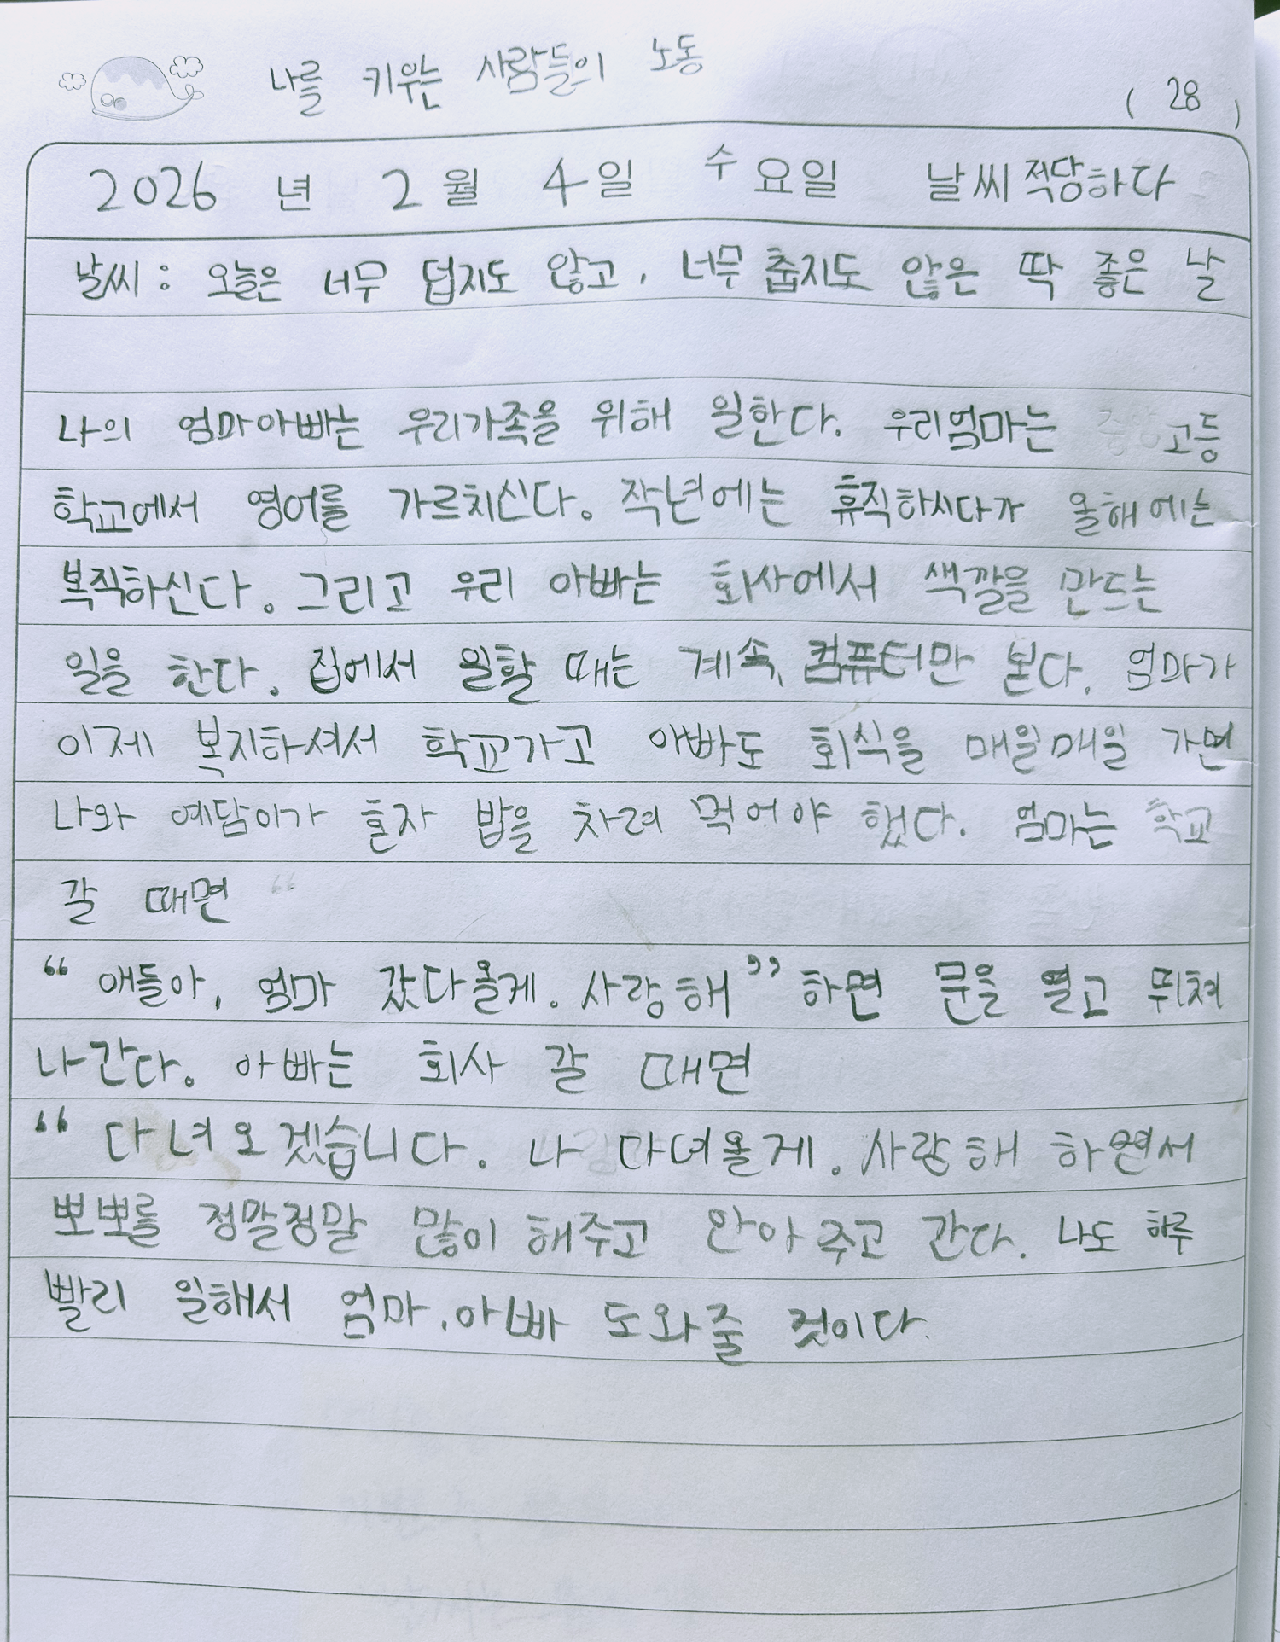 나를 키우는 사람들의 노동
( 28 )
2026 년 2 월 4 일 수 요일 날씨 적당하다
날씨 : 오늘은 너무 덥지도 않고, 너무 춥지도 않은 딱 좋은 날
나의 엄마아빠는 우리가족을 위해 일한다. 우리엄마는 고등
학교에서 영어를 가르치신다. 작년에는 휴직하시다가 올해에는
복직하신다. 그리고 우리 아빠는 회사에서 색깔을 만드는
일을 한다. 집에서 일할 때는 계속, 컴퓨터만 본다. 엄마가
이제 복지하셔서 학교가고 아빠도 회식을 매일매일 가면
나와 예담이가 혼자 밥을 차려 먹어야 했다. 엄마는 학교
갈 때면
“ 애들아, 엄마 갔다올게. 사랑해 ” 하면 문을 열고 뛰쳐
나간다. 아빠는 회사 갈 때면
“ 다녀오겠습니다. 나 다녀올게. 사랑해 하면서
뽀뽀를 정말정말 많이 해주고 안아 주고 간다. 나도 하루
빨리 일해서 엄마, 아빠 도와줄 것이다